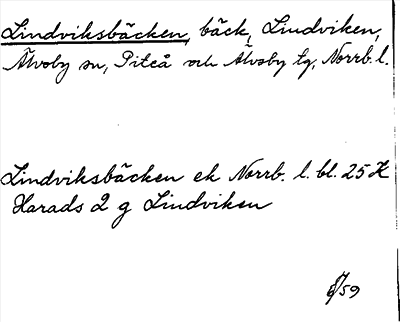 Lindviksbäcken, bäck, Lindviken,
Älvsby sn, Piteå och Älvsby tg, Norrb. l.
Lindviksbäcken ek Norrb. l. bl. 25 K
Harads 2 g Lindviken
/59